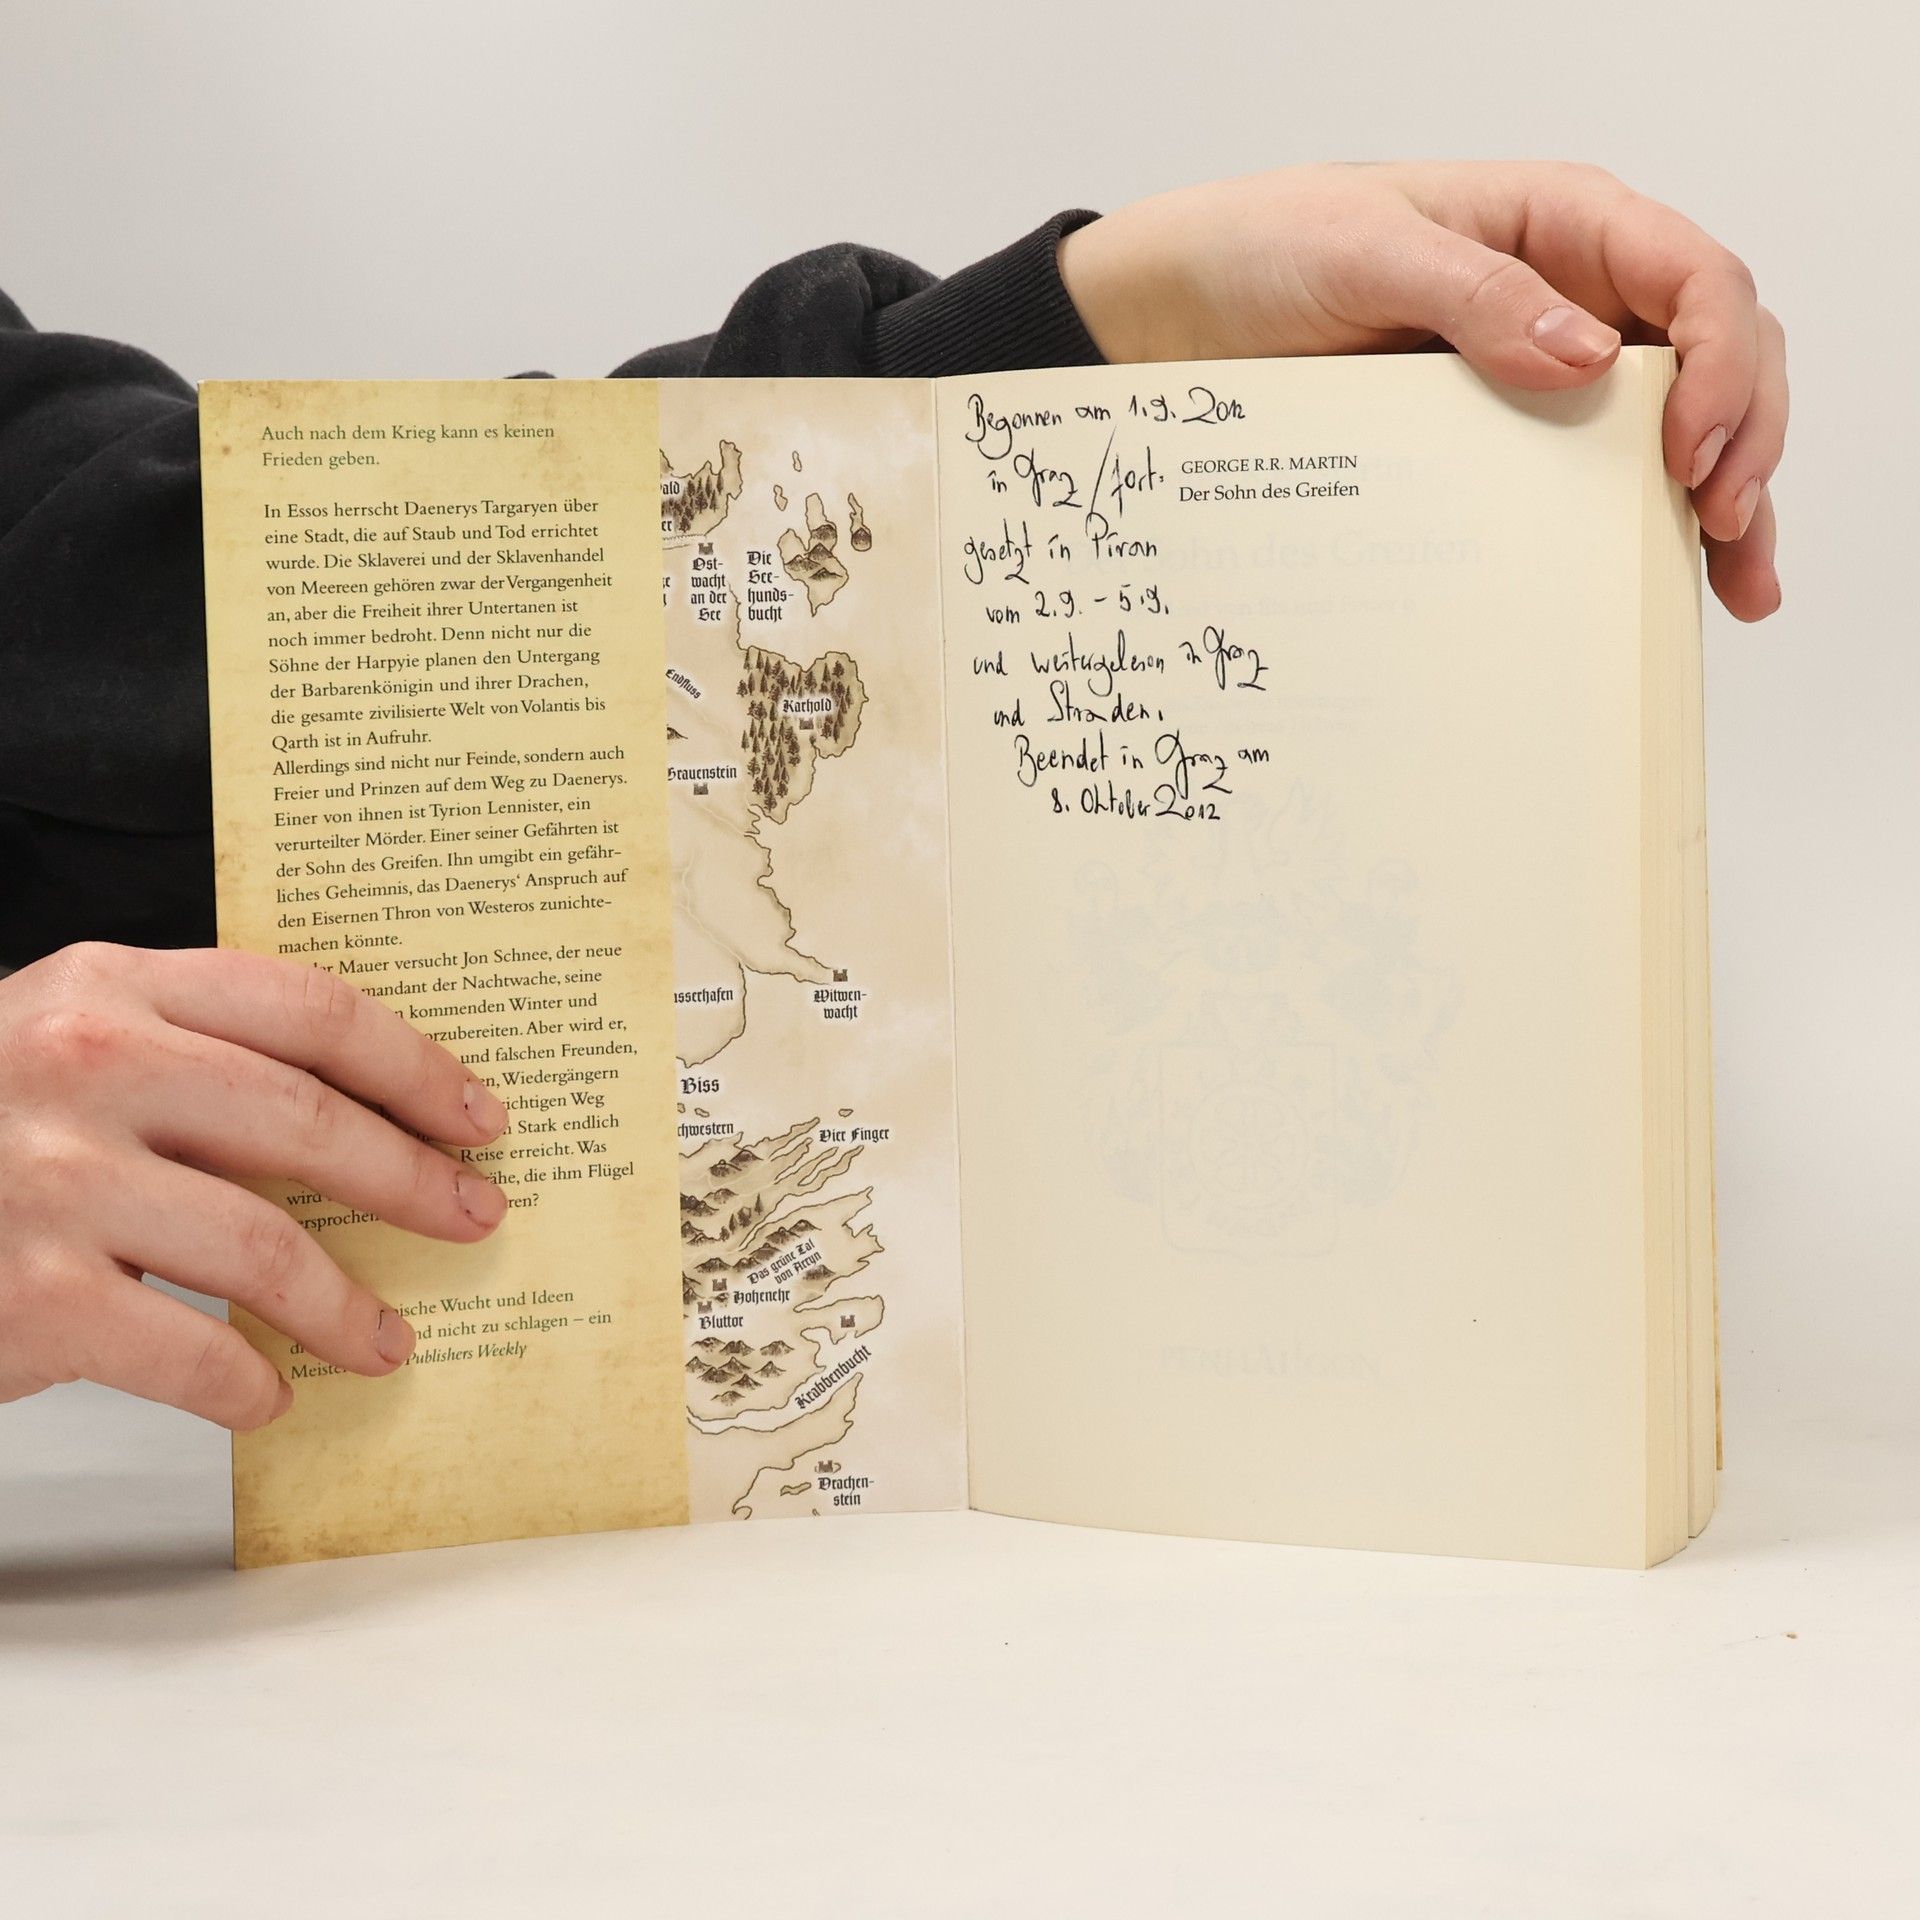 Auch nach dem Krieg kann es keinen
Frieden geben.
In Essos herrscht Daenerys Targaryen über
eine Stadt, die auf Staub und Tod errichtet
wurde. Die Sklaverei und der Sklavenhandel
von Meereen gehören zwar der Vergangenheit
an, aber die Freiheit ihrer Untertanen ist
noch immer bedroht. Denn nicht nur die
Söhne der Harpyie planen den Untergang
der Barbarenkönigin und ihrer Drachen,
die gesamte zivilisierte Welt von Volantis bis
Qarth ist in Aufruhr.
Allerdings sind nicht nur Feinde, sondern auch
Freier und Prinzen auf dem Weg zu Daenerys.
Einer von ihnen ist Tyrion Lennister, ein
verurteilter Mörder. Einer seiner Gefährten ist
der Sohn des Greifen. Ihn umgibt ein gefähr-
liches Geheimnis, das Daenerys' Anspruch auf
den Eisernen Thron von Westeros zunichte-
machen könnte.
Mauer versucht Jon Schnee, der neue
mandant der Nachtwache, seine
kommenden Winter und
orzubereiten. Aber wird er,
und falschen Freunden,
en, Wiedergängern
ichtigen Weg
Stark endlich
Reise erreicht. Was
ähe, die ihm Flügel
wird ren?
ersprochen
ische Wucht und Ideen
nd nicht zu schlagen – ein
Publishers Weekly
ald
er
Ost-
wacht
an der
See
Die
See-
hunds-
bucht
Endfluss
Karhold
Grauenstein
asserhafen
Witwen-
wacht
Biss
chwestern
Vier Finger
Das grüne Tal
von Arryn
Hohenehr
Bluttor
Krabbenbucht
Drachen-
stein
Begonnen am 1.9.2012
in Graz / fort-
gesetzt in Piran
vom 2.9. - 5.9.
und weitergelesen in Graz
und Straden.
Beendet in Graz am
8. Oktober 2012
GEORGE R.R. MARTIN
Der Sohn des Greifen